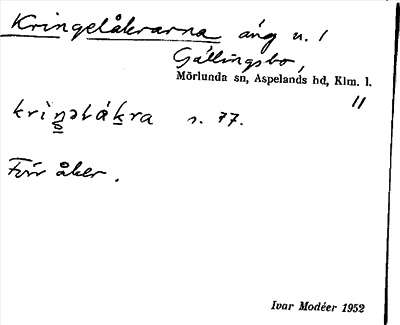 Kringelåkrarna äng u. 1
Gällingsbo,
Mörlunda sn, Aspelands hd, Klm. l.
11
krìŋəlåkra s. 77.
Förr åker.
Ivar Modéer 1952